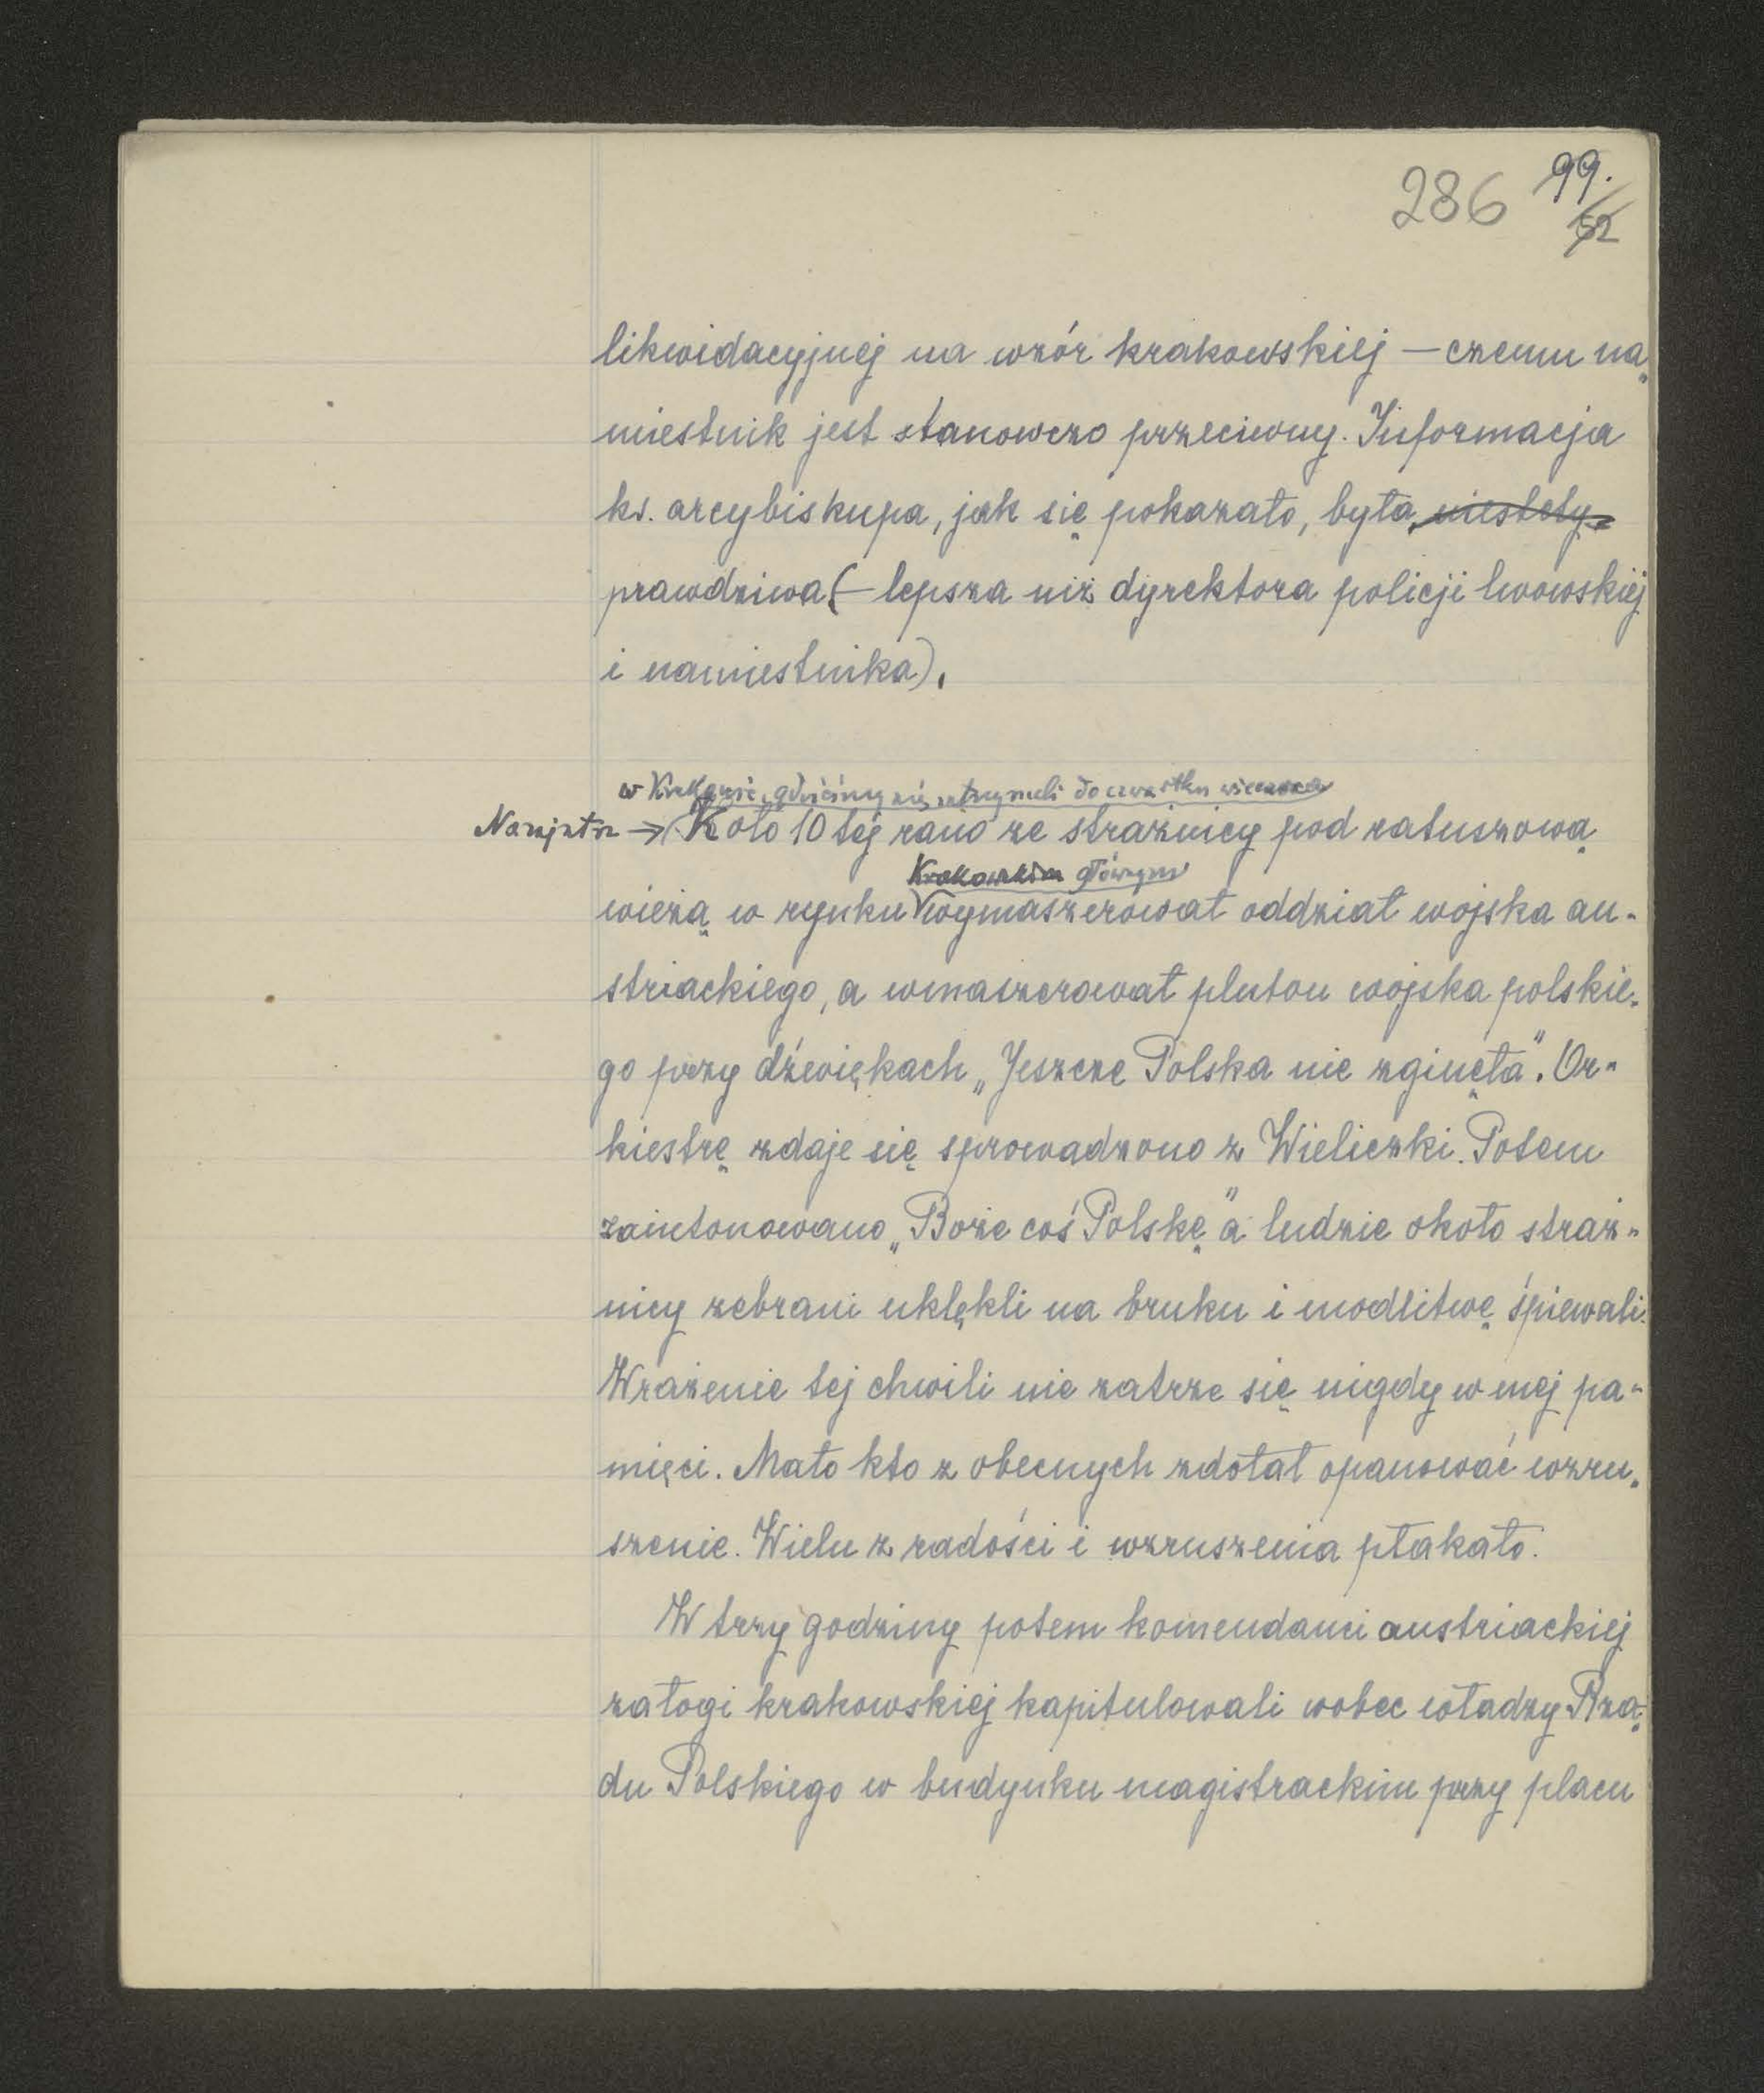 286 99.
52
likwidacyjnej na wzór krakowskiej — czemu na„
miestnik jest stanowczo przeciwny. Informacja
ks. arcybiskupa, jak się pokazało, była, niestety,
prawdziwa (— lepsza niż dyrektora policji lwowskiej
i namiestnika).
w Krakowie, gdzieśmy się zatrzymali do czwartku wieczora
Nazajutrz → Koło 10 tej rano ze strażnicy pod ratuszową
Krakowskim głównym
wieżą w rynku wymaszerował oddział wojska au-
striackiego, a wmaszerował pluton wojska polskie-
go przy dźwiękach „Jeszcze Polska nie zginęła". Or-
kiestrę zdaje się sprowadzono z Wieliczki. Potem
zaintonowano „Boże coś Polskę" a ludzie około straż-
nicy zebrani uklękli na bruku i modlitwę śpiewali.
Wrażenie tej chwili nie zatrze się nigdy w mej pa-
mięci. Mało kto z obecnych zdołał opanować wzru-
szenie. Wielu z radości i wzruszenia płakało.
W trzy godziny potem komendanci austriackiej
załogi krakowskiej kapitulowali wobec władzy Rzą-
du Polskiego w budynku magistrackim przy placu